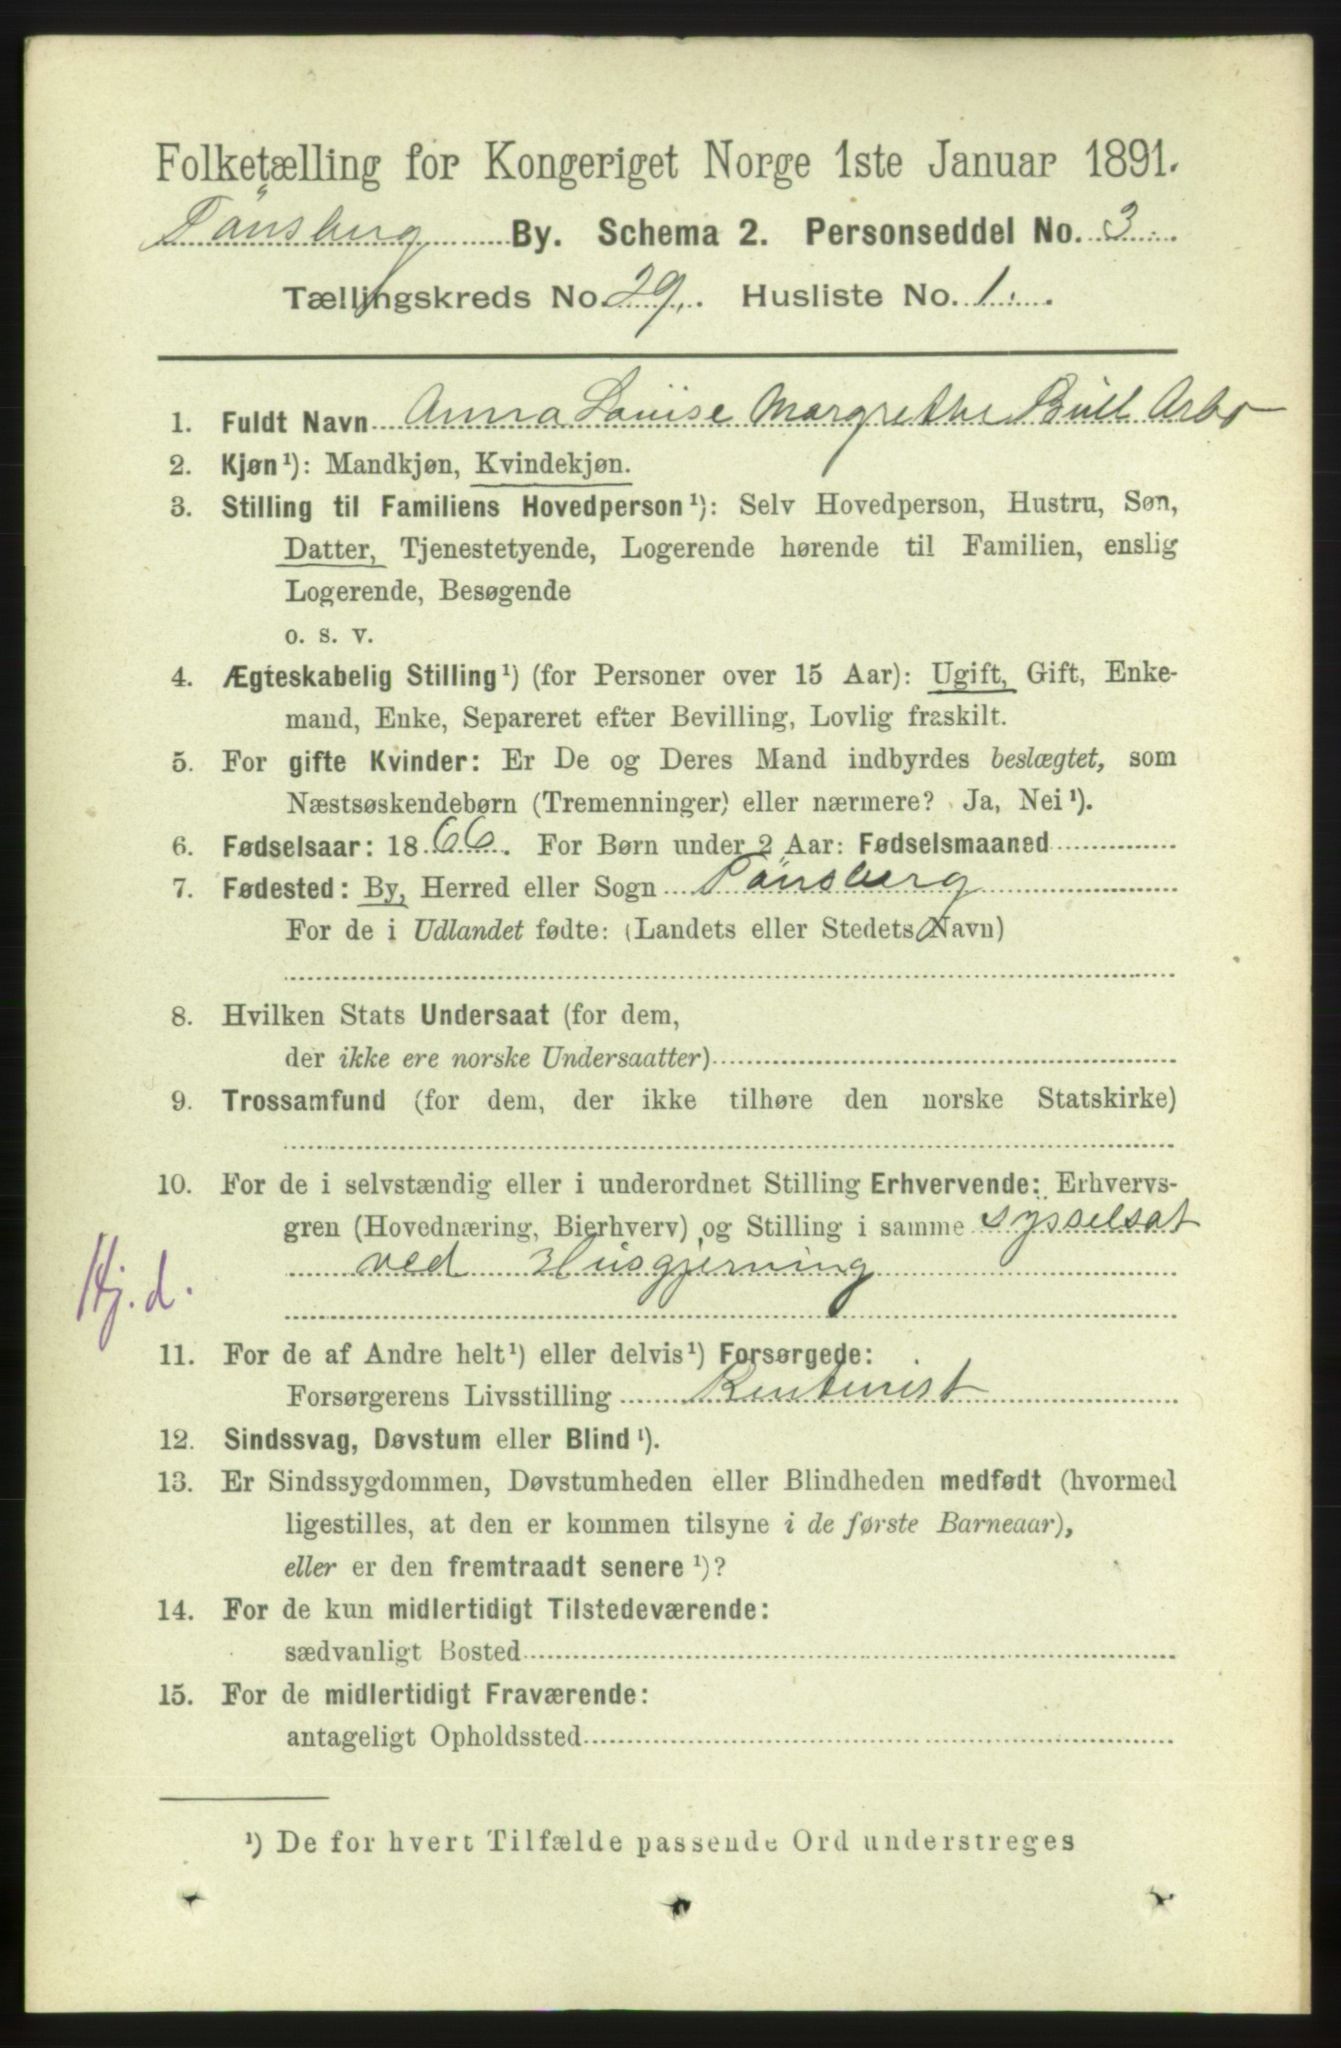 Folketælling for Kongeriget Norge 1ste Januar 1891.
Tönsberg By. Schema 2. Personseddel No. 3.
Tællingskreds No. 29. Husliste No. 1.
1. Fuldt Navn Anna Louise Margrethe Bull Arbo
2. Kjøn¹): Mandkjøn, Kvindekjøn.
3. Stilling til Familiens Hovedperson¹): Selv Hovedperson, Hustru, Søn,
Datter, Tjenestetyende, Logerende hørende til Familien, enslig
Logerende, Besøgende
o. s. v.
4. Ægteskabelig Stilling¹) (for Personer over 15 Aar): Ugift, Gift, Enke-
mand, Enke, Separeret efter Bevilling, Lovlig fraskilt.
5. For gifte Kvinder: Er De og Deres Mand indbyrdes beslægtet, som
Næstsøskendebørn (Tremenninger) eller nærmere? Ja, Nei¹).
6. Fødselsaar: 1866. For Børn under 2 Aar: Fødselsmaaned
7. Fødested: By, Herred eller Sogn Tönsberg
For de i Udlandet fødte: (Landets eller Stedets Navn)
8. Hvilken Stats Undersaat (for dem,
der ikke ere norske Undersaatter)
9. Trossamfund (for dem, der ikke tilhøre den norske Statskirke)
10. For de i selvstændig eller i underordnet Stilling Erhvervende: Erhvervs-
gren (Hovednæring, Bierhverv) og Stilling i samme sysselsat
ved Husgjerning
Hj. d.
11. For de af Andre helt¹) eller delvis¹) Forsørgede:
Forsørgerens Livsstilling Rentenist
12. Sindssvag, Døvstum eller Blind¹).
13. Er Sindssygdommen, Døvstumheden eller Blindheden medfødt (hvormed
ligestilles, at den er kommen tilsyne i de første Barneaar),
eller er den fremtraadt senere¹)?
14. For de kun midlertidigt Tilstedeværende:
sædvanligt Bosted
15. For de midlertidigt Fraværende:
antageligt Opholdssted
¹) De for hvert Tilfælde passende Ord understreges